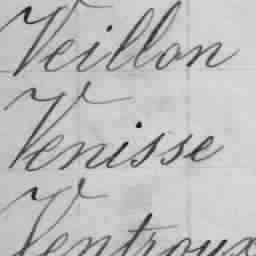 Veillon
Venisse
Ventroux